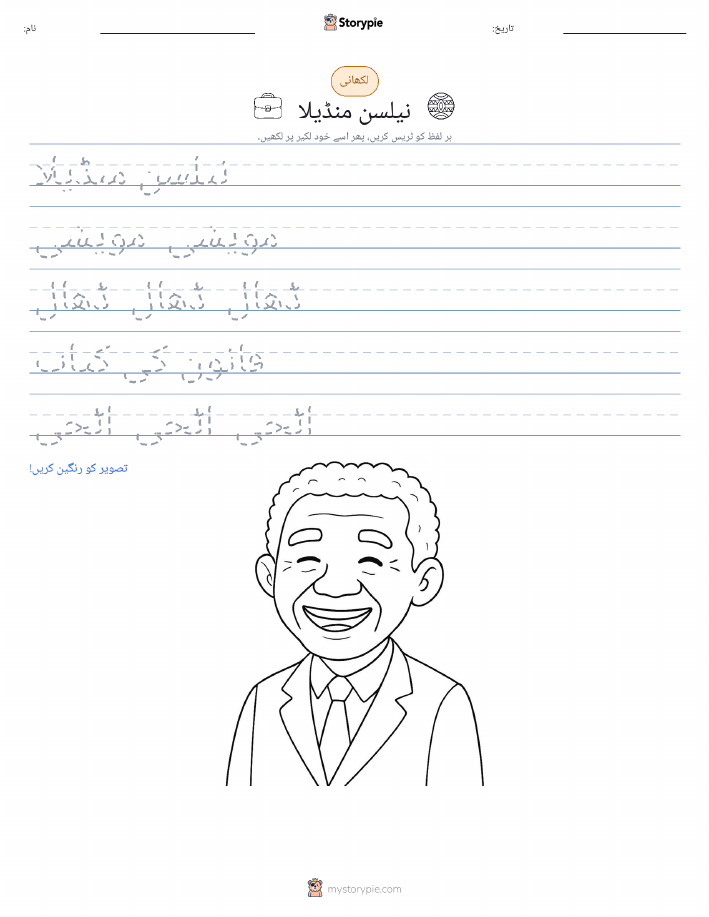 نام:
Storypie
تاریخ:
لکھائی
نیلسن منڈیلا
ہر لفظ کو ٹریس کریں، پھر اسے خود لکیر پر لکھیں۔
نیلسن منڈیلا
مویشی مویشی
ڈھال ڈھال ڈھال
قانون کی کتاب
ایلچی ایلچی ایلچی
تصویر کو رنگین کریں!
mystorypie.com